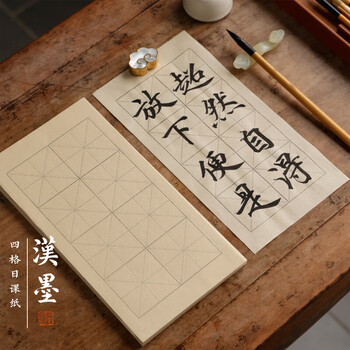 超然自得
放下便是
漢墨
四格日课纸